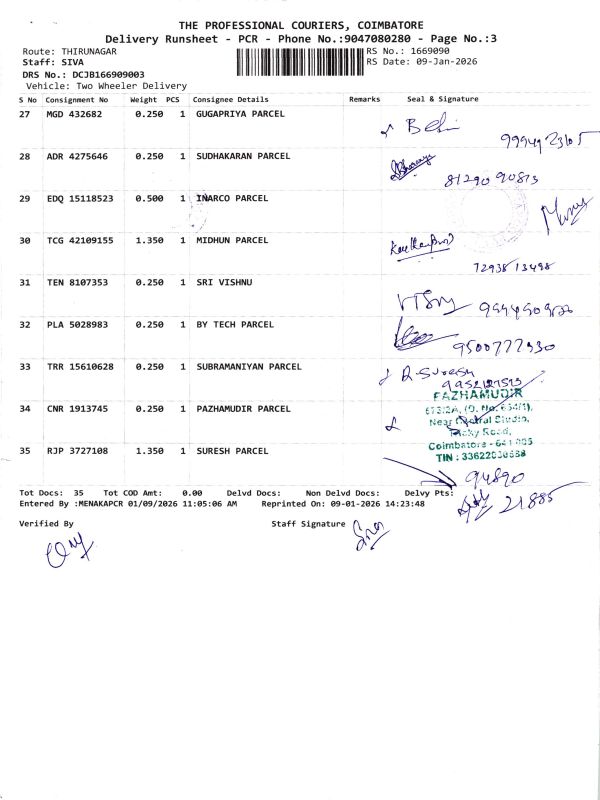 THE PROFESSIONAL COURIERS, COIMBATORE
Delivery Runsheet - PCR - Phone No.:9047080280 - Page No.:3
Route: THIRUNAGAR RS No.: 1669090
Staff: SIVA RS Date: 09-Jan-2026
DRS No.: DCJB166909003
Vehicle: Two Wheeler Delivery
S No Consignment No Weight PCS Consignee Details Remarks Seal & Signature
27 MGD 432682 0.250 1 GUGAPRIYA PARCEL
28 ADR 4275646 0.250 1 SUDHAKARAN PARCEL
81290 90813
29 EDQ 15118523 0.500 1 INARCO PARCEL
30 TCG 42109155 1.350 1 MIDHUN PARCEL
72938 13498
31 TEN 8107353 0.250 1 SRI VISHNU
32 PLA 5028983 0.250 1 BY TECH PARCEL
9500777330
33 TRR 15610628 0.250 1 SUBRAMANIYAN PARCEL
R. Suresh
PAZHAMUDIR
34 CNR 1913745 0.250 1 PAZHAMUDIR PARCEL
Near Central Studio,
Road,
Coimbatore - 641 005
35 RJP 3727108 1.350 1 SURESH PARCEL
TIN : 33622030688
94890
21885
Tot Docs: 35 Tot COD Amt: 0.00 Delvd Docs: Non Delvd Docs: Delvy Pts:
Entered By :MENAKAPCR 01/09/2026 11:05:06 AM Reprinted On: 09-01-2026 14:23:48
Verified By Staff Signature